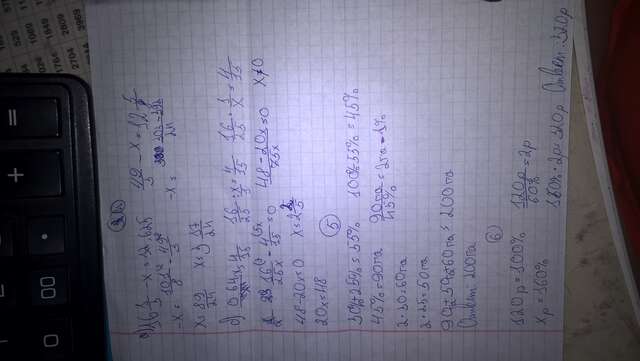 а) 16 1/3 - x = 12,625   49/3 - x = 12 5/8
-x = 101/8 - 49/3   -x = 303-392/24
x = 89/24   x = 3 17/24
б) 0,64 : x = 4/15   16/25 : x/1 = 4/15   16/25 · 1/x = 4/15
16/25x - 4/15 = 0   48-20x/75x = 0   x≠0
48-20x=0   x=2 2/5
20x=48
5
30%+25%=55%   100%-55%=45%
45%=90га   90га/45%=2га=1%
2·30=60га
2·25=50га
90га+50га+60га=200га
Ответ: 200га
6
120р=100%   120р/60%=2р
xр=160%
160%·2р=320р   Ответ: 320р